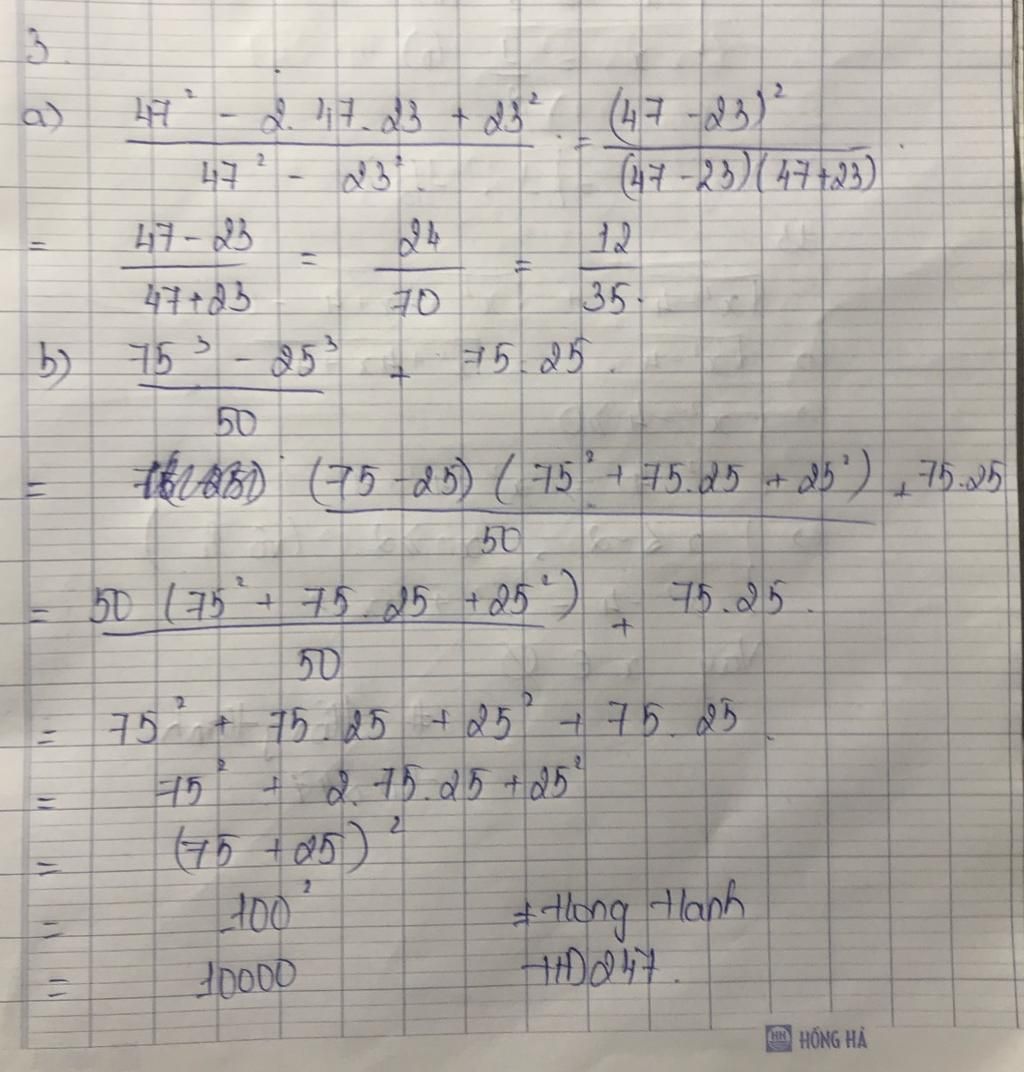 3.
a) (47² - 2.47.23 + 23²)/(47² - 23²) = (47 - 23)²/((47 - 23)(47 + 23))
= (47 - 23)/(47 + 23) = 24/70 = 12/35.
b) (75³ - 25³)/50 + 75.25.
= ((75 - 25)(75² + 75.25 + 25²))/50 + 75.25
= (50(75² + 75.25 + 25²))/50 + 75.25.
= 75² + 75.25 + 25² + 75.25.
= 75² + 2.75.25 + 25²
= (75 + 25)²
= 100² + Hong Hanh
= 10000 HD247.
HH HỒNG HÀ